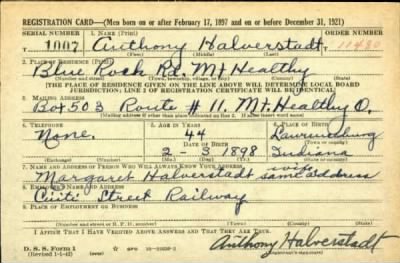 REGISTRATION CARD—(Men born on or after February 17, 1897 and on or before December 31, 1921)
SERIAL NUMBER 1. NAME (Print) ORDER NUMBER
1007 Anthony Halverstadt 11480
2. PLACE OF RESIDENCE (Print)
Blue Rock Rd. Mt Healthy
(Number and street) (Town, township, village, or city) (County) (State)
[THE PLACE OF RESIDENCE GIVEN ON THE LINE ABOVE WILL DETERMINE LOCAL BOARD
JURISDICTION; LINE 2 OF REGISTRATION CERTIFICATE WILL BE IDENTICAL]
3. MAILING ADDRESS
Box 503 Route #11. Mt. Healthy O.
[Mailing address if other than place indicated on line 2. If same insert word same]
4. TELEPHONE 5. AGE IN YEARS 6. PLACE OF BIRTH
None. 44
DATE OF BIRTH (Town or county)
2-3-1898 Indiana
(Exchange) (Number) (Mo.) (Day) (Yr.) (State or country)
7. NAME AND ADDRESS OF PERSON WHO WILL ALWAYS KNOW YOUR ADDRESS wife
Margaret Halverstadt same address
8. EMPLOYER'S NAME AND ADDRESS
Street Railway
9. PLACE OF EMPLOYMENT OR BUSINESS
(Number and street or R. F. D. number) (Town) (County) (State)
I AFFIRM THAT I HAVE VERIFIED ABOVE ANSWERS AND THAT THEY ARE TRUE.
D. S. S. Form 1
(Revised 1-1-42) (over) Anthony Halverstadt